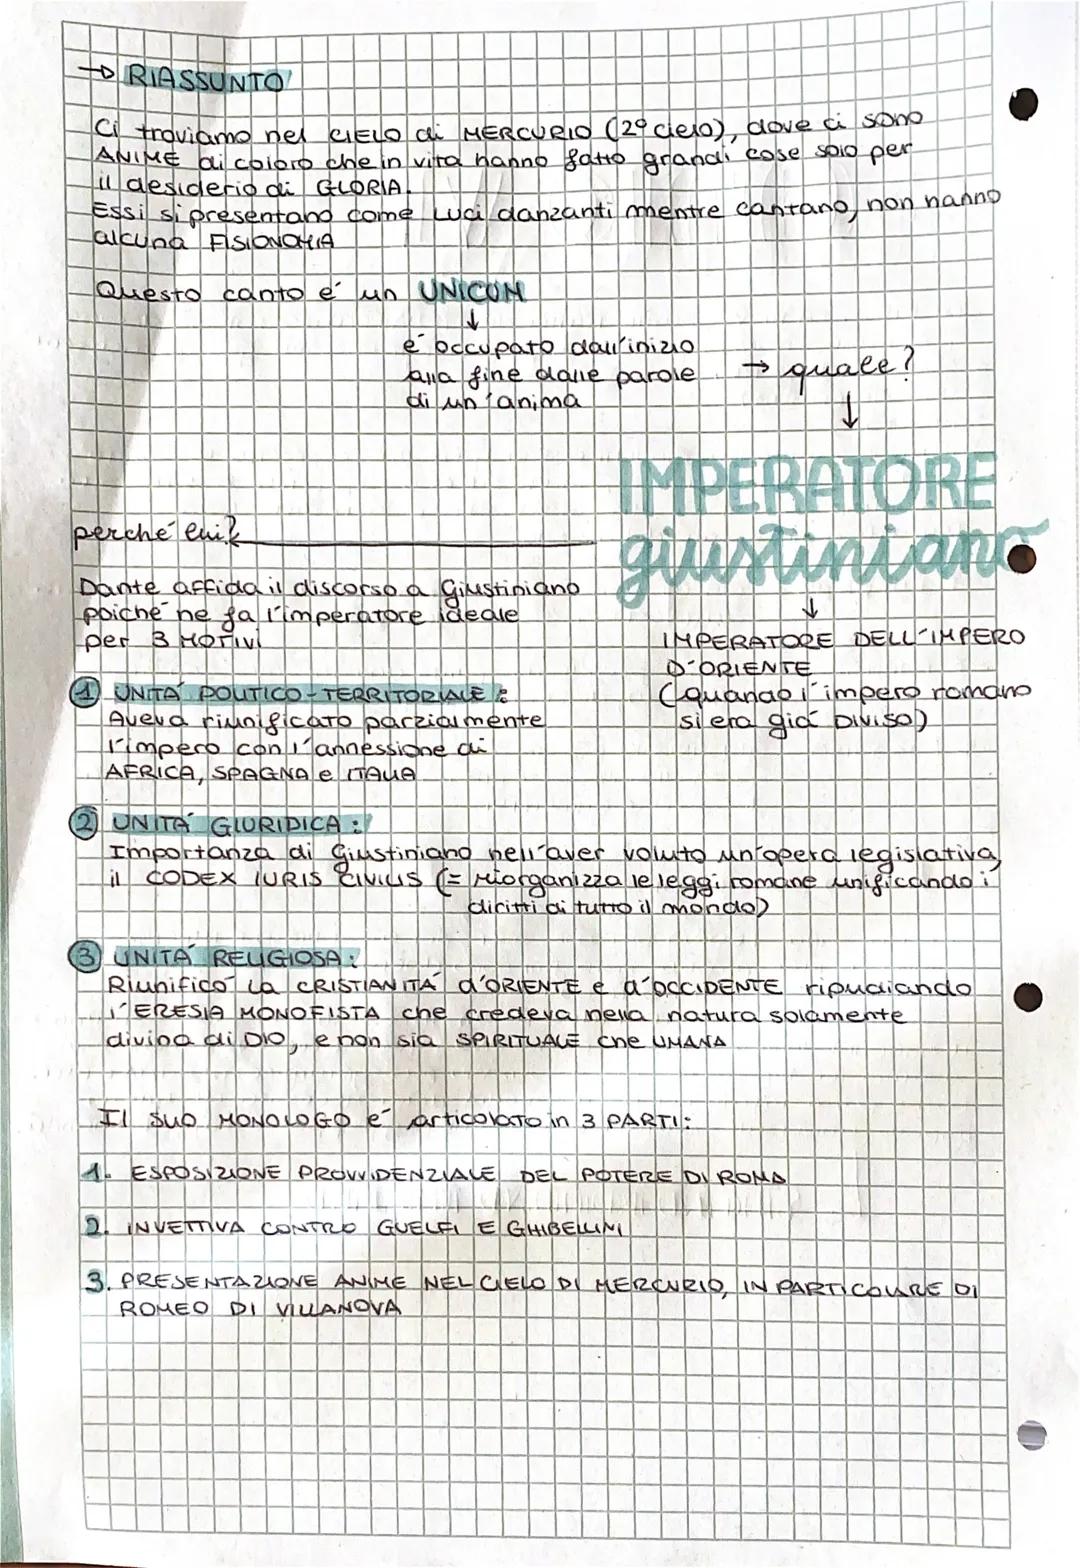 → RIASSUNTO
Ci troviamo nel CIELO di MERCURIO (2º cielo), dove ci sono
ANIME di coloro che in vita hanno fatto grandi cose solo per
il desiderio di GLORIA.
Essi si presentano come luci danzanti mentre cantano, non hanno
alcuna FISIONOMIA
Questo canto é un UNICUM
↓
é occupato dall'inizio
alla fine dalle parole
di un'anima
→ quale?
↓
IMPERATORE
giustiniano
↓
IMPERATORE DELL'IMPERO
D'ORIENTE
(quando l'impero romano
si era giá DIVISO)
perché lui?
Dante affida il discorso a Giustiniano
poiché ne fa l'imperatore ideale
per 3 MOTIVI
1 UNITÁ POLITICO-TERRITORIALE:
Aveva riunificato parzialmente
l'impero con l'annessione di
AFRICA, SPAGNA e ITALIA
2 UNITÁ GIURIDICA:
Importanza di Giustiniano nell'aver voluto un'opera legislativa,
il CODEX IURIS CIVILIS (= riorganizza le leggi romane unificando i
diritti di tutto il mondo)
3 UNITÁ RELIGIOSA:
Riunificó la CRISTIANITÁ d'ORIENTE e d'OCCIDENTE ripudiando
l'ERESIA MONOFISTA che credeva nella natura solamente
divina di DIO, e non sia SPIRITUALE che UMANA
Il suo MONOLOGO é articolato in 3 PARTI:
1. ESPOSIZIONE PROVVIDENZIALE DEL POTERE DI ROMA
2. INVETTIVA CONTRO GUELFI E GHIBELLINI
3. PRESENTAZIONE ANIME NEL CIELO DI MERCURIO, IN PARTICOLARE DI
ROMEO DI VILLANOVA